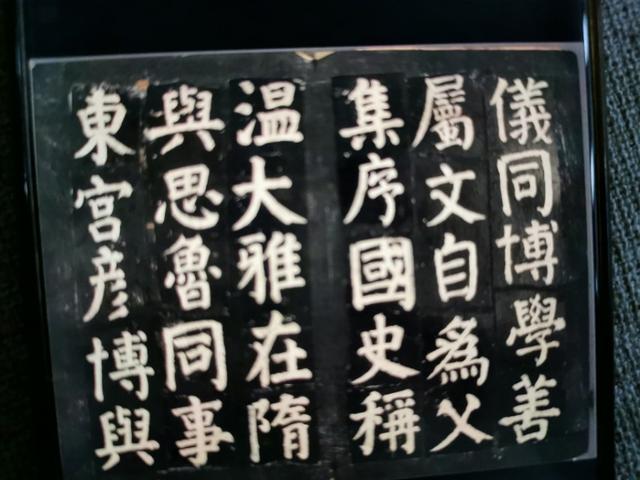 儀同博學善
屬文自為父
集序國史稱
温大雅在隋
與思魯同事
東宮彦博與